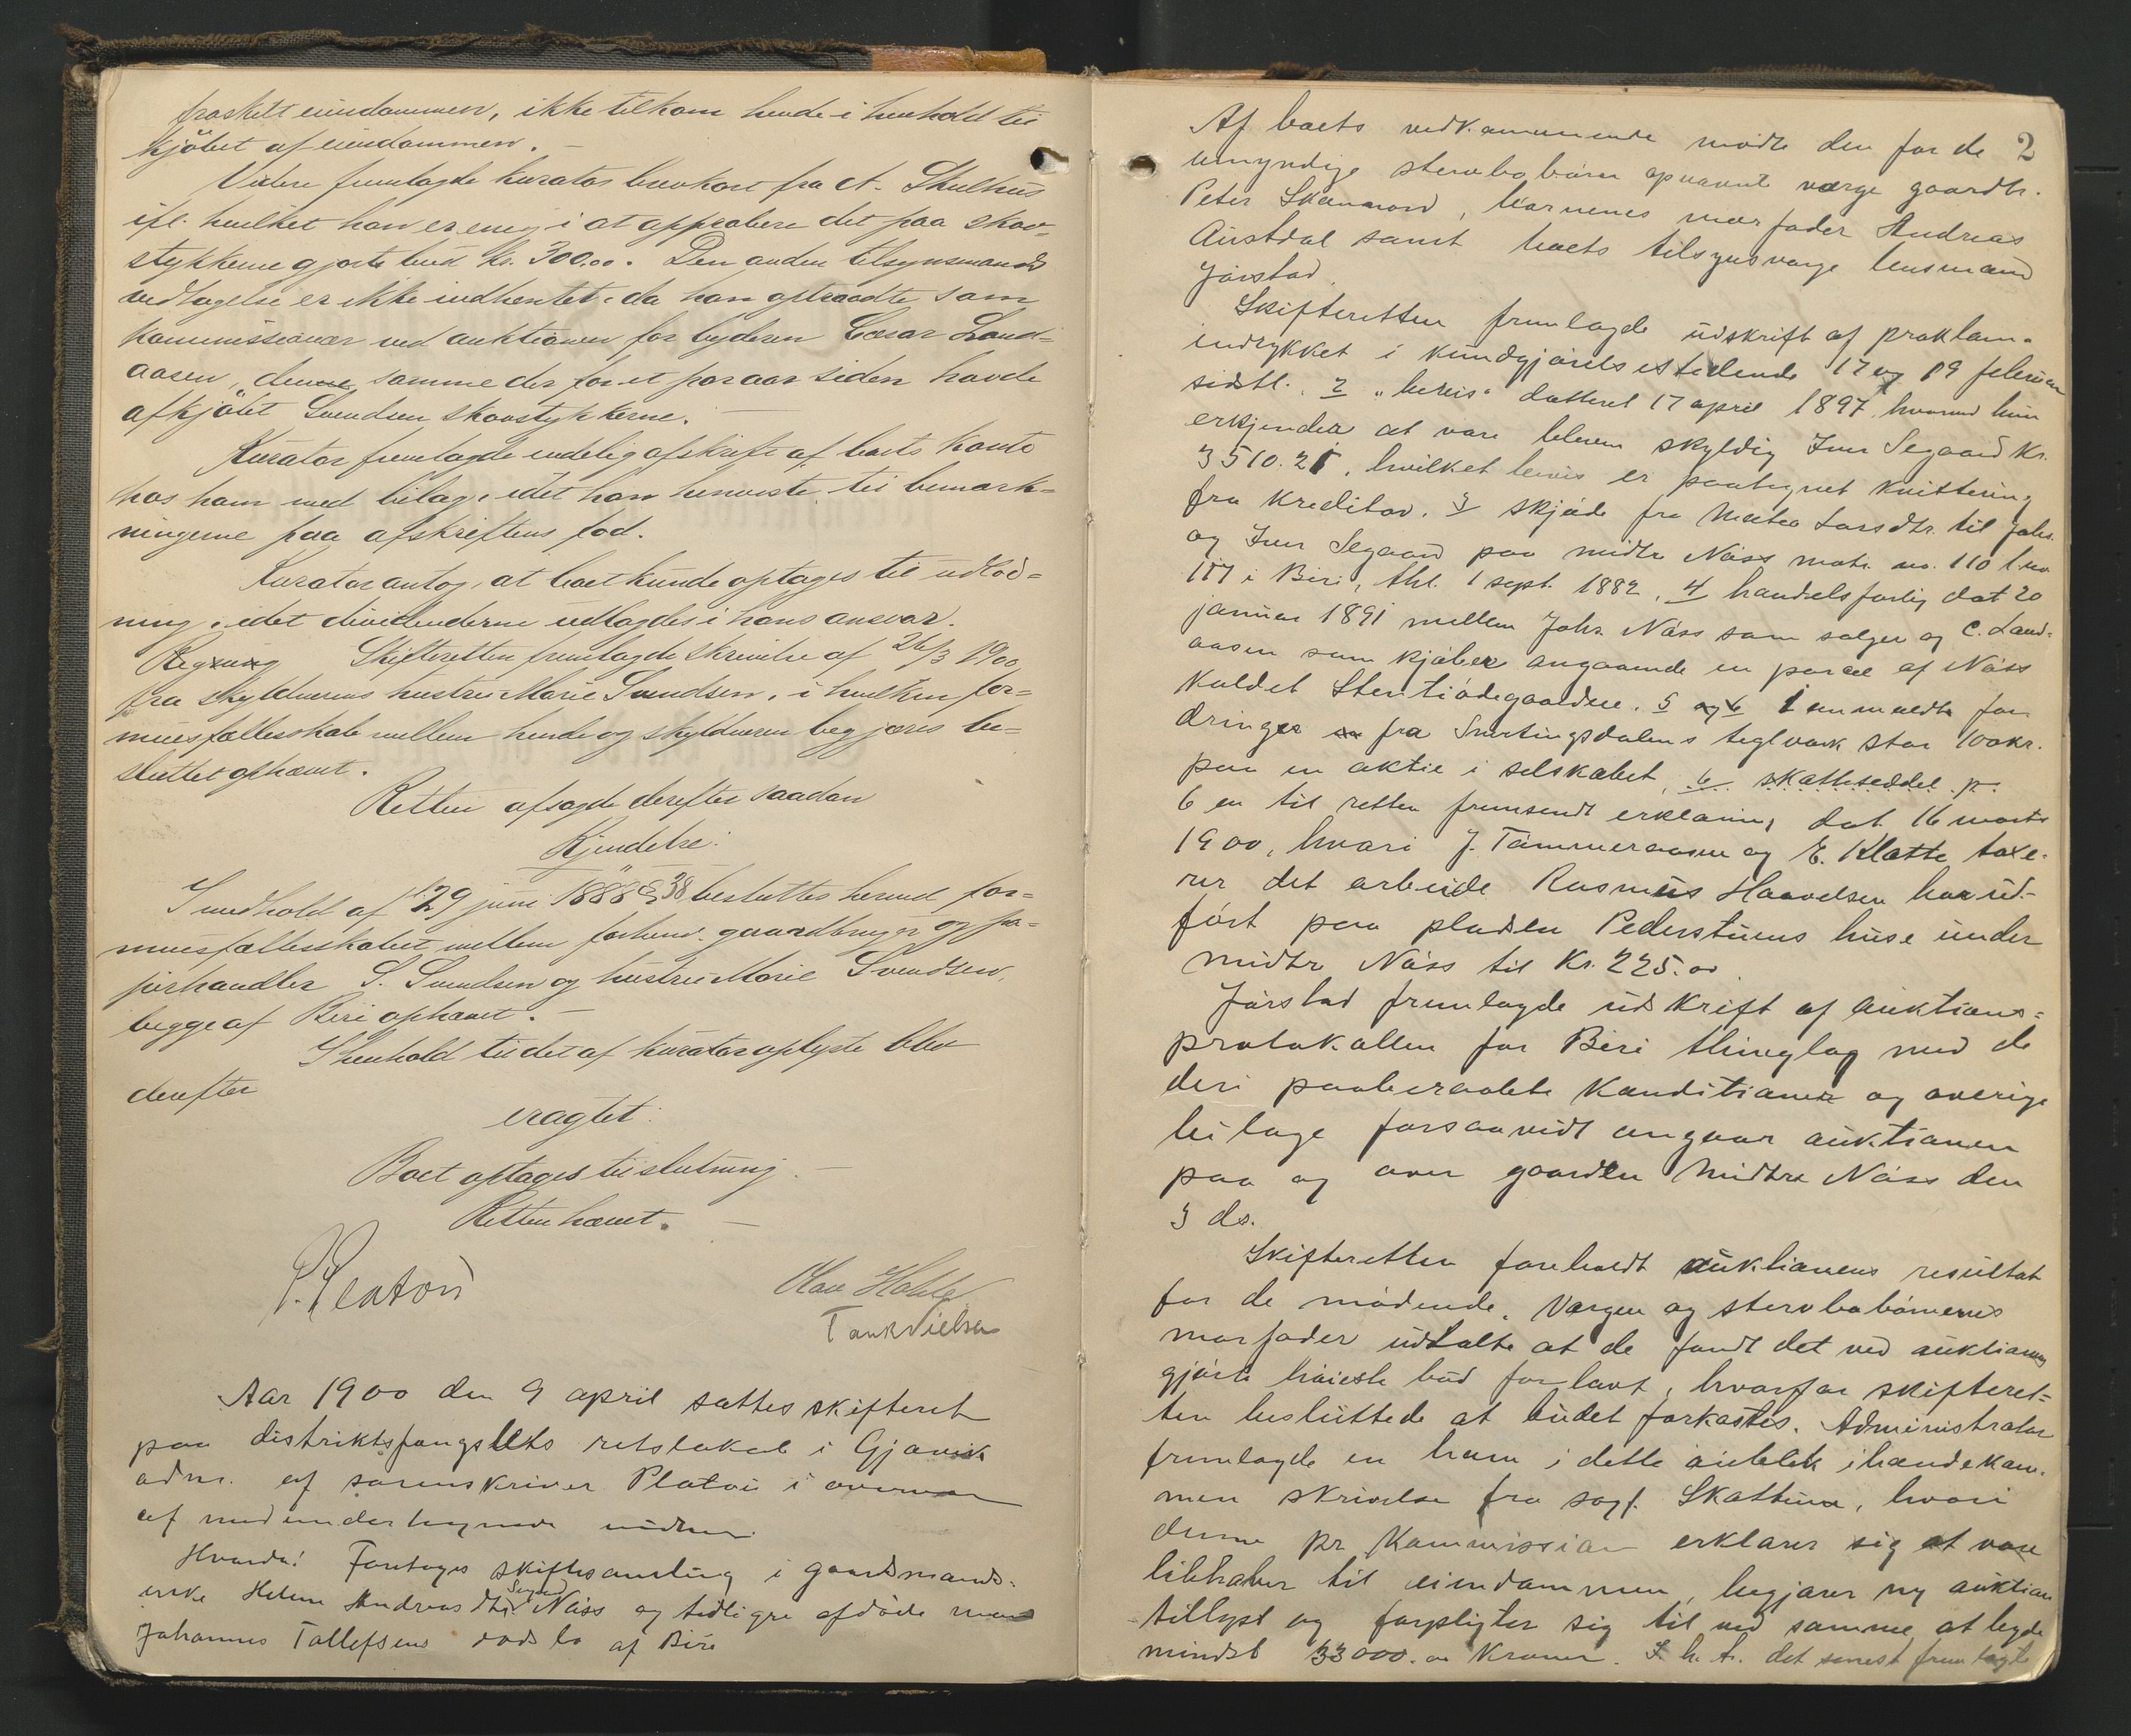 fraskilt eiendommen, ikke tilkom hende i henhold til
kjöbet af eiendommen. –
Videre fremlagde kurator brevkort fra A. Skulhus
ifl. hvilket han er enig i at approbere det paa skov-
stykkerne gjorte bud kr. 300.00. Den anden tilsynsmands
vedtagelse er ikke indhentet, da han optraadte som
kommissionær ved auktionen for byderen Cæsar Land-
aasen, denne samme der for et par aar siden havde
afkjöbt Svendsen skovstykkerne. –
Kurator fremlagde endelig afskrift af boets konto
hos ham med bilag, idet han henviste til bemærk-
ningerne paa afskriftens fod.
Kurator antog, at boet kunde optages til udlod-
ning, idet dividenderne udlagdes i hans ansvar.
Skifteretten fremlagde skrivelse af 26/3 1900
fra skyldnerens hustru Marie Svendsen, i hvilken for-
muesfællesskab mellem hende og skyldneren begjæres be-
sluttet ophævet.
Retten afsagde derefter saadan
Kjendelse:
I medhold af l. 29 juni 1888 § 38 besluttes herved for-
muesfællesskabet mellem forhenv. gaardbruger og pa-
pirhandler S. Svendsen og hustru Marie Svendsen,
begge af Biri ophævet. –
I henhold til det af kurator oplyste blev
derefter
eragtet:
Boet optages til slutning. –
Retten hævet. –
P. Platou
Olav Holte
Tank Nielsen
Aar 1900 den 9 april sattes skifteret
paa distriktsfængslets retslokale i Gjøvik
adm. af sorenskriver Platou i overvær
af medundertegnede vidner.
Hvorda! Foretoges skiftesamling i gaardmands-
enke Helene Andreasdtr. Segaard Näss og tidligere afdöde mand
Johannes Tollefsens dödsbo af Biri
2
Af boets vedkommende mödte den for de
umyndige stervbobörn opnævnt værge gaardbr.
Peter Skammord, börnenes morfader Andreas
Austdal samt boets tilsynsværge lensmand
Jörstad.
Skifteretten fremlagde udskrift af proklama
indrykket i kundgjörelsestidende 17 og 19 februar
sidstl. 2 "bevis" datteret 17 april 1897 hvorved hun
erkjender at være bleven skyldig Iver Segaard Kr.
3510.21, hvilket bevis er paategnet kvittering
fra kreditor. 3 skjöde fra Mathea Larsdtr. til Johs.
og Iver Segaard paa midtre Näss matr. no. 110 l no
117 i Biri, thl. 1 sept. 1882, 4 handelsforlig dat 20
januar 1891 mellem Johs. Näss som sælger og C. Land-
aasen som kjöber angaaende en parcel af Näss
kaldet Stentiödegaarden. 5 anmeldte for-
dringer fra Snertingdalens teglværk stor 100 kr.
paa en aktie i selskabet, 6 skatteseddel p.
6 en til retten fremsendt erklæring dat. 16 marts
1900, hvori J. Tömmeraasen og E. Klette taxe-
rer det arbeide Rasmus Haavelsen har ud-
fört paa pladsen Pederstuens huse under
midtre Näss til Kr. 225.00.
Jörstad fremlagde udskrift af auktions-
protokollen for Biri thinglag med de
deri paaberaabte konditioner og överige
bilage forsaavidt angaar auktionen
paa og over gaarden Midtre Näss den
3 ds.
Skifteretten foreholdt auktionens resultat
for de mödende. Værgen og stervbobörnenes
morfader udtalte at de fandt det ved auktionen
gjorte höieste bud for lavt, hvorfor skifteret-
ten besluttede at budet forkastes. Administrator
fremlagde en ham i dette öieblik ihændekom-
men skrivelse fra sagf. Skattum, hvori
denne pr kommission erklærer sig at være
liebhaber til eiendommen, begjærer ny auktion
tillyst og forpligter sig til ved samme at byde
mindst 33000.00 kroner. I. h. t. det senest fremlagte